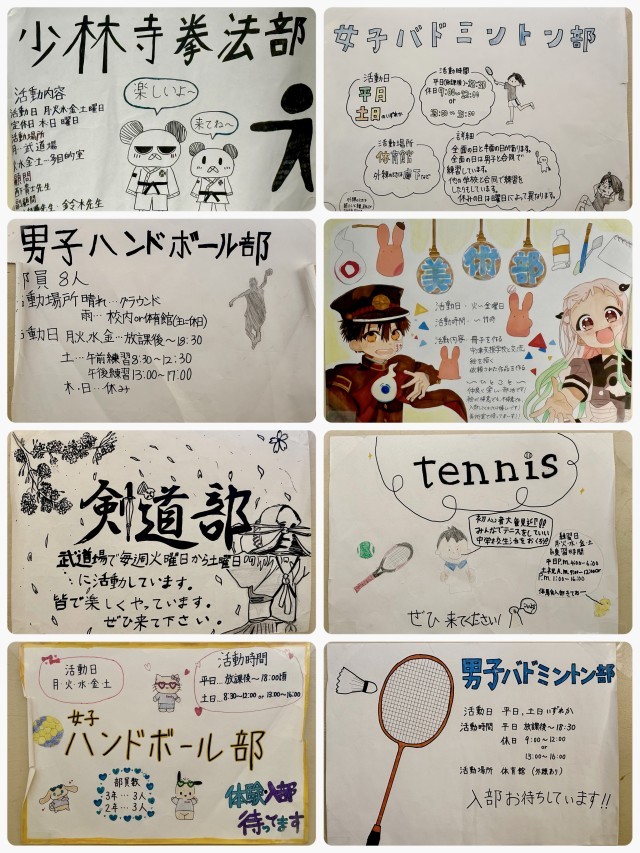 少林寺拳法部
活動内容
活動日 月火水金土曜日
定休日 木日曜日
活動場所
月…武道場
水金土…多目的室
顧問
先生
副顧問
鈴木先生
楽しいよ〜
来てね〜
女子バドミントン部
活動日
平日
土日のいずれか
活動時間
平日(放課後)〜18:30
休日 9:00〜12:00
or
活動場所
体育館
外練のときは廊下など
詳細
全面の日と半面の日があります。
全面の日は男子と合同で
練習しています。
他の学校と合同で練習を
したりもしています。
休みの日は曜日によって異なります。
男子ハンドボール部
部員 8人
活動場所 晴れ…グラウンド
雨…校内or体育館(主に休日)
活動日 月火水金…放課後〜18:30
土…午前練習8:30〜12:30
午後練習13:00〜17:00
木・日…休み
美術部
活動日:火〜金曜日
活動時間:〜
活動内容:冊子を作る
絵を描く
依頼された作品を作る
〜ひとこと〜
剣道部
武道場で毎週火曜日から土曜日
に活動しています。
皆で楽しくやっています。
ぜひ来て下さい。
tennis
初心者大歓迎!!
みんなでテニスをしていい
中学校生活をおくろう!
練習日
月・火・水・金・土
練習時間
平日P.M.4:00〜6:30
P.M.1:00〜16:00
ぜひ来てください!
活動日
月・火・水・金・土
活動時間
平日…放課後〜18:00頃
土日…8:30〜12:00 or 13:00〜16:00
女子
ハンドボール部
部員数
3年…3人
2年…3人
体験入部
待ってます
男子バドミントン部
活動日 平日、土日いずれか
活動時間 平日 放課後〜18:30
休日 9:00〜12:00
or
13:00〜16:00
活動場所 体育館(外練あり)
入部お待ちしています!!